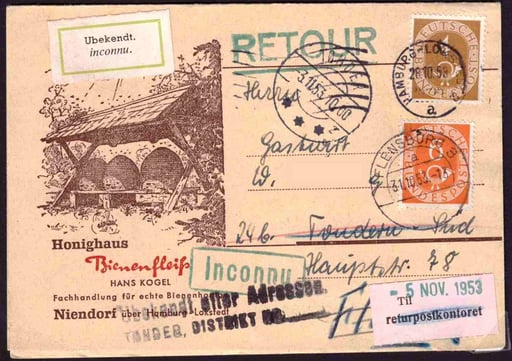 Ubekendt.
inconnu.
RETOUR
DEUTSCHE
4
HAMBURG-LOKSTEDT
28.10.53
a
TØNDER
3.11.53.10.00
Herrn
Gastwirt
W.
FLENSBURG 3
a
31.10.53.
DEUTSCHE
BUNDESPOST
8
24 b. Tondern-Süd
Hauptstr. 28
Inconnu
Honighaus
Bienenfleiß
HANS KOGEL
Fachhandlung für echte Bienenhon
Niendorf über Hamburg-Lokstedt
Ubekendt efter Adressen
TØNDER, DISTRIKT NO.
- 5 NOV. 1953
Til
returpostkontoret